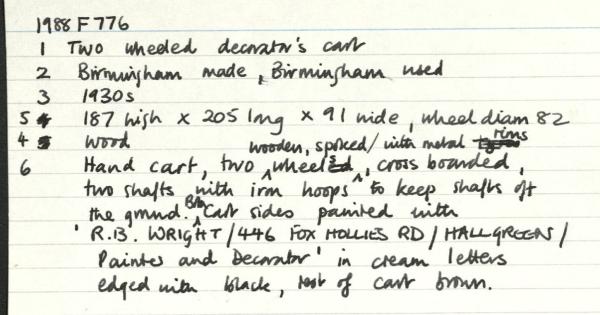 1988 F 776
1 Two wheeled decorator's cart
2 Birmingham made, Birmingham used
3 1930s
5 187 high x 205 long x 91 wide, wheel diam 82
4 Wood
wooden, spoked / with metal rims
6 Hand cart, two wheels, cross boarded,
two shafts with iron hoops to keep shafts off
the ground. Cart sides painted with
'R.B. WRIGHT / 446 FOX HOLLIES RD / HALL GREEN /
Painter and Decorator' in cream letters
edged with black, rest of cart brown.